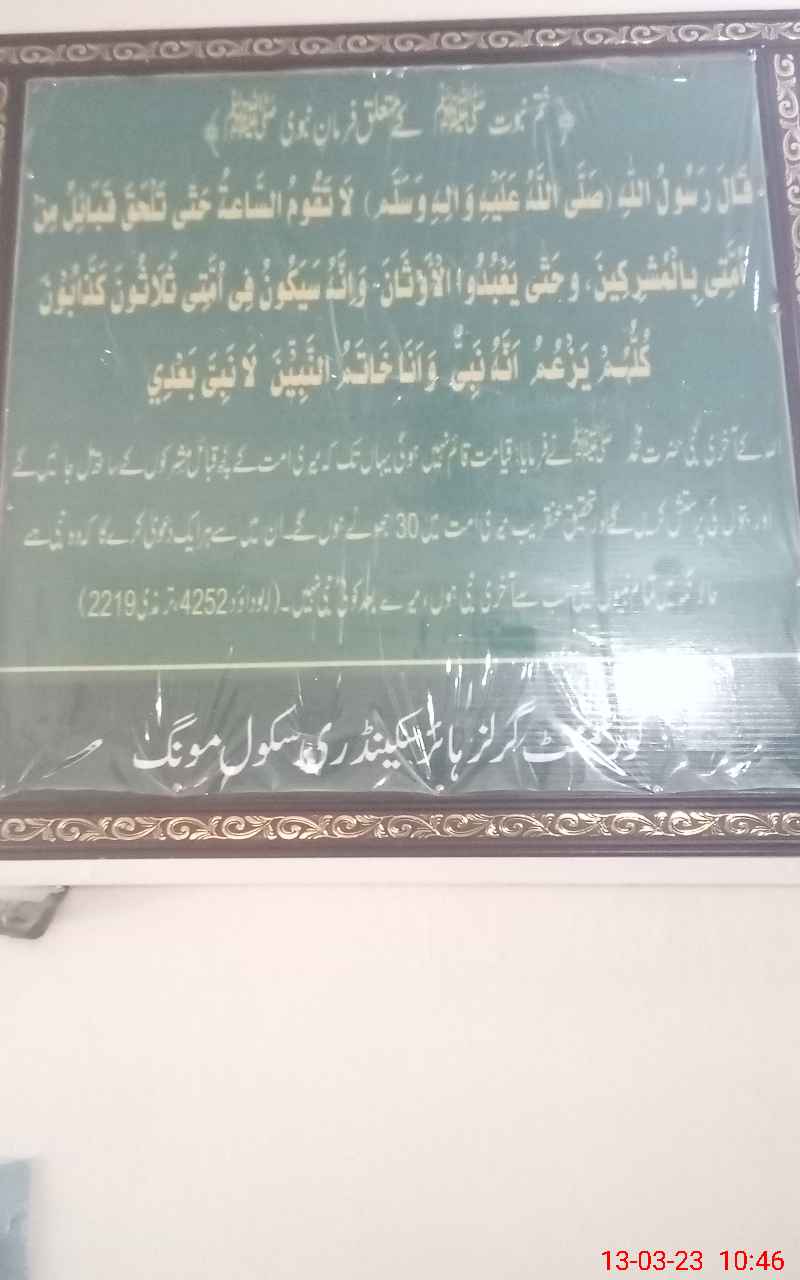 ﴿ختم نبوت ﷺ کے متعلق فرمان نبوی ﷺ﴾
قَالَ رَسُولُ اللّٰهِ (صَلَّى اللَّهُ عَلَيْهِ وَآلِهِ وَسَلَّمَ) لَا تَقُومُ السَّاعَةُ حَتّٰى تَلْحَقَ قَبَائِلُ مِنْ
أُمَّتِي بِالْمُشْرِكِينَ، وحَتّٰى يَعْبُدُوا الْأَوْثَانَ، وَإِنَّهُ سَيَكُونُ فِي أُمَّتِي ثَلَاثُونَ كَذَّابُونَ
كُلُّهُمْ يَزْعُمُ أَنَّهُ نَبِيٌّ وَأَنَا خَاتَمُ النَّبِيِّينَ لَا نَبِيَّ بَعْدِي
کے آخری نبی حضرت محمد ﷺ نے فرمایا: قیامت قائم نہیں ہوگی یہاں تک کہ میری امت کے کچھ قبائل مشرکوں کے ساتھ مل جائیں گے
اور بتوں کی پرستش کریں گے اور تحقیق عنقریب میری امت میں 30 جھوٹے ہوں گے۔ ان میں سے ہر ایک دعویٰ کرے گا کہ وہ نبی ہے
حالانکہ میں تمام نبیوں میں سب سے آخری نبی ہوں، میرے بعد کوئی نبی نہیں۔ (ابوداؤد 4252، ترمذی 2219)
گورنمنٹ گرلز ہائر سکینڈری سکول مونگ
13-03-23 10:46